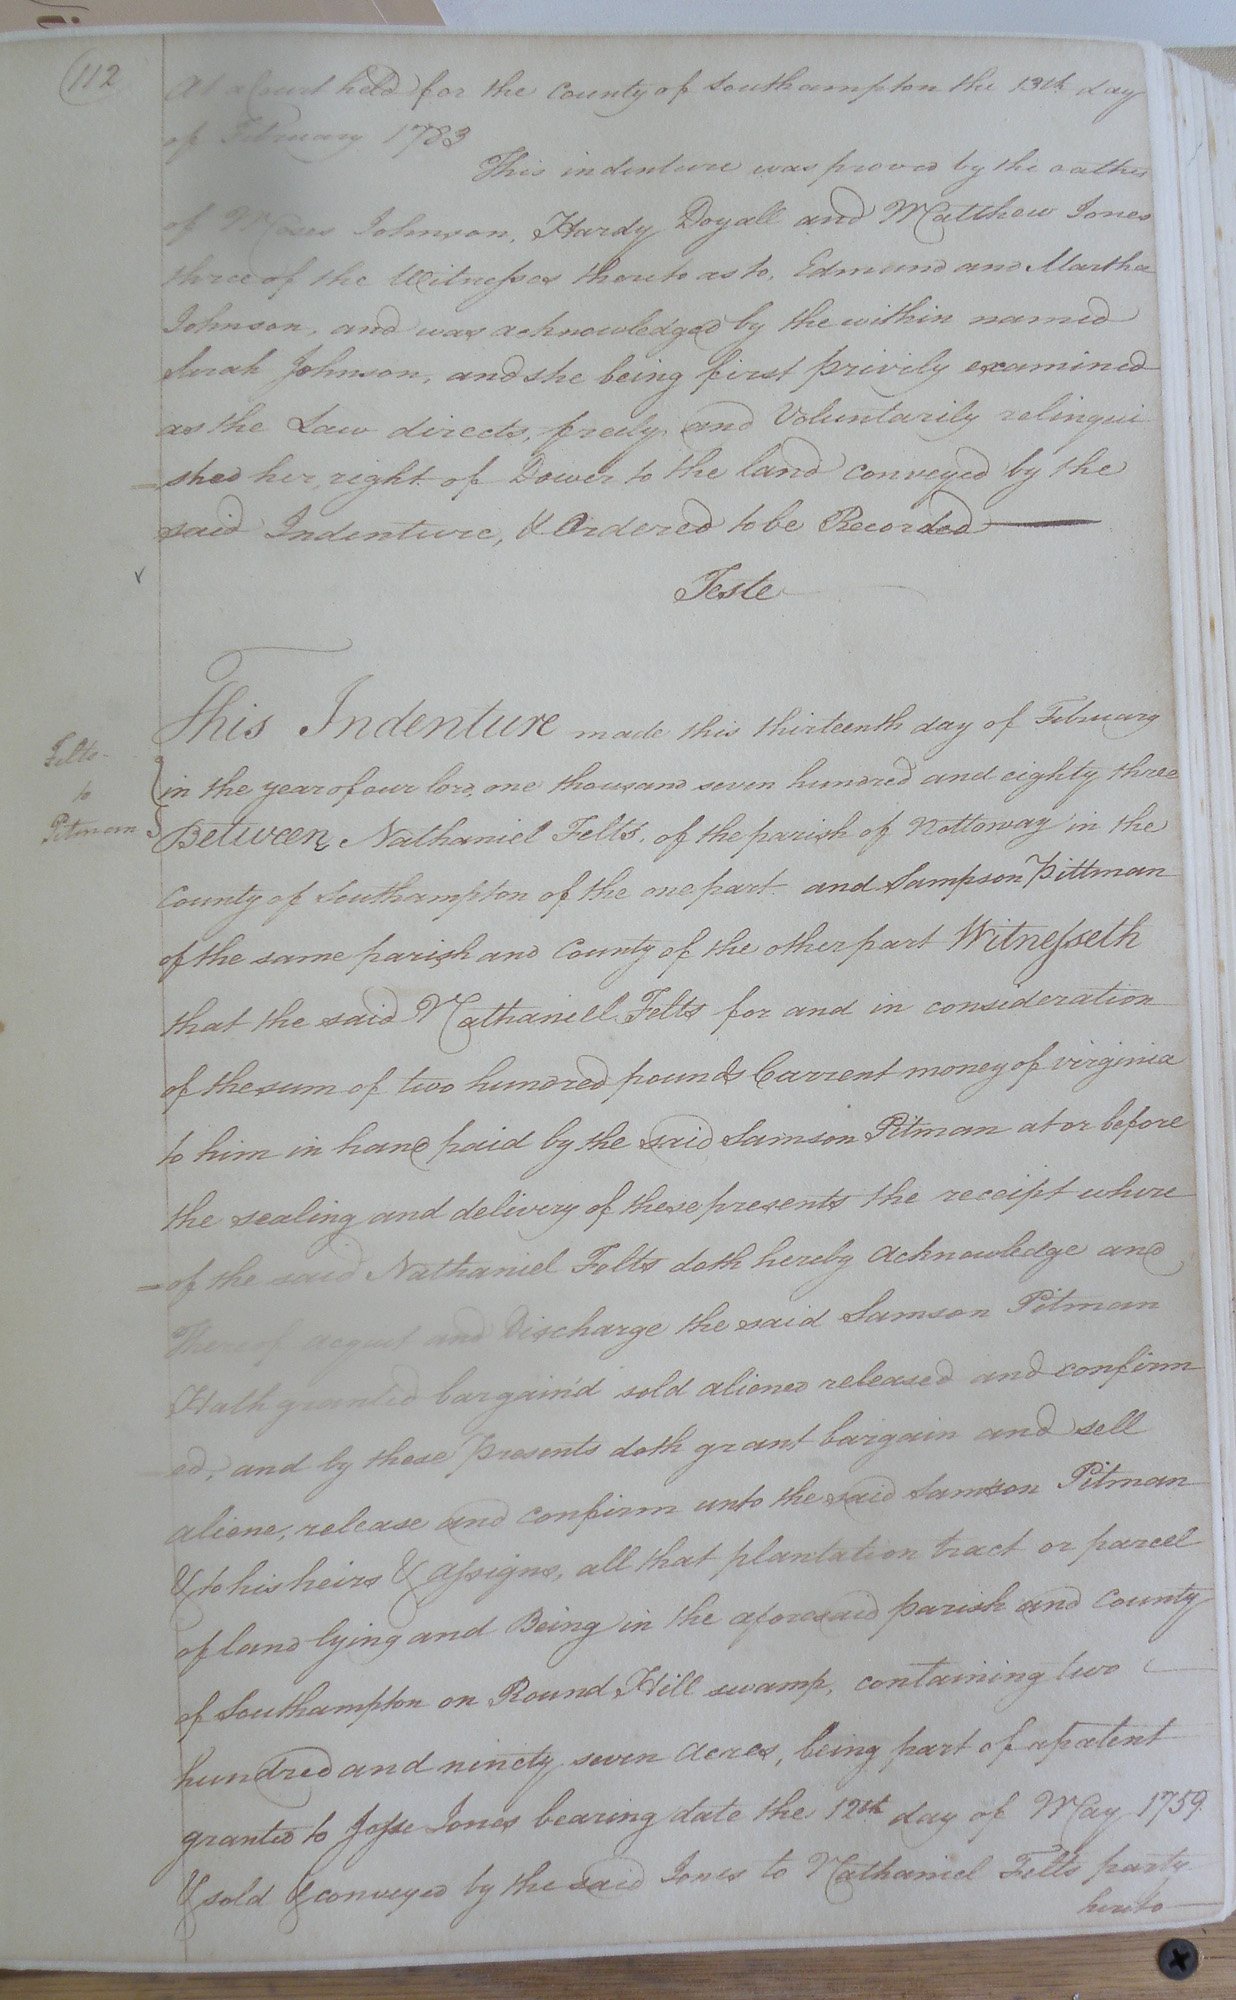 112
At a Court held for the County of Southampton the 13th day
of February 1783
This indenture was proved by the oathes
of Moses Johnson, Hardy Doyall and Matthew Jones
three of the Witnesses thereto as to, Edmund and Martha
Johnson, and was acknowledged by the within named
Sarah Johnson, and she being first privily examined
as the Law directs, freely, and Voluntarily relinqui
=shed her right of Dower to the land conveyed by the
said Indenture, & Ordered to be Recorded
Teste
This Indenture made this thirteenth day of February
Felts
to
Pitman
in the year of our lord, one thousand seven hundred and eighty three
Between Nathaniel Felts, of the parish of Nottoway in the
County of Southampton of the one part and Sampson Pittman
of the same parish and County of the other part Witnesseth
that the said Nathaniell Felts for and in consideration
of the sum of two hundred pounds Current money of virginia
to him in hand paid by the said Samson Pitman at or before
the sealing and delivery of these presents the receipt where
=of the said Nathaniel Felts doth hereby acknowledge and
Thereof acquit and Discharge the said Samson Pitman
Hath granted bargain'd sold aliened released and confirm
ed, and by these Presents doth grant bargain and sell
aliene, release and confirm unto the said Samson Pitman
& to his heirs & assigns, all that plantation tract or parcel
of land lying and Being in the aforesaid parish and County
of Southampton on Round Hill swamp, containing two
hundred and ninety seven acres, being part of a patent
granted to Jesse Jones bearing date the 12th day of May 1759
& sold & conveyed by the said Jones to Nathaniel Felts party
hereto